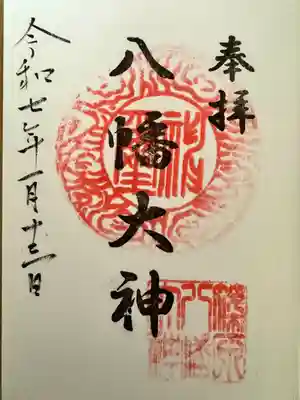 奉拝
八幡大神
令和七年一月十三日